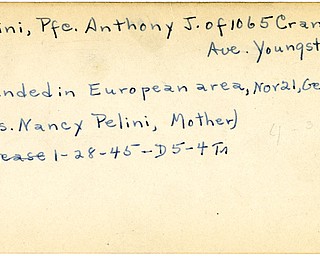 ini, Pfc. Anthony J. of 1065 Cran
Ave. Youngst
unded in European area, Nov 21, Ge
s. Nancy Pelini, Mother)
ease 1-28-45-D5-4 Tr